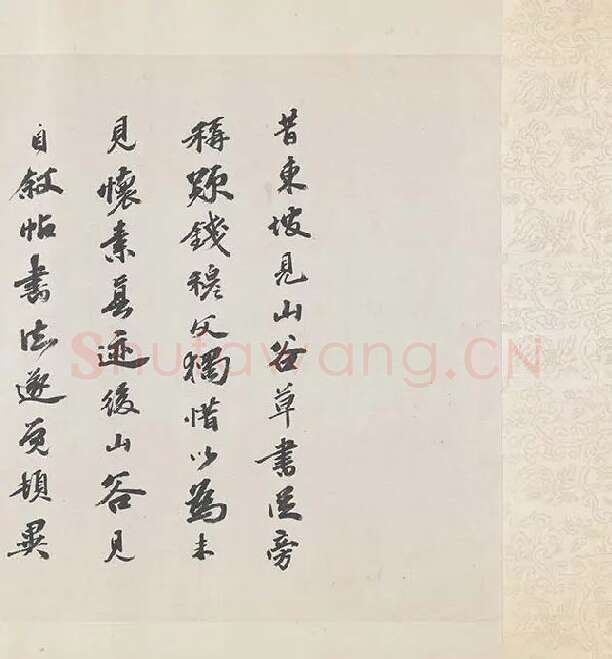 昔東坡見山谷草書從旁
稱賞錢穆父獨惜以為未
見懷素真迹後山谷見
自敘帖書法遂更頓異
Shufawang.CN